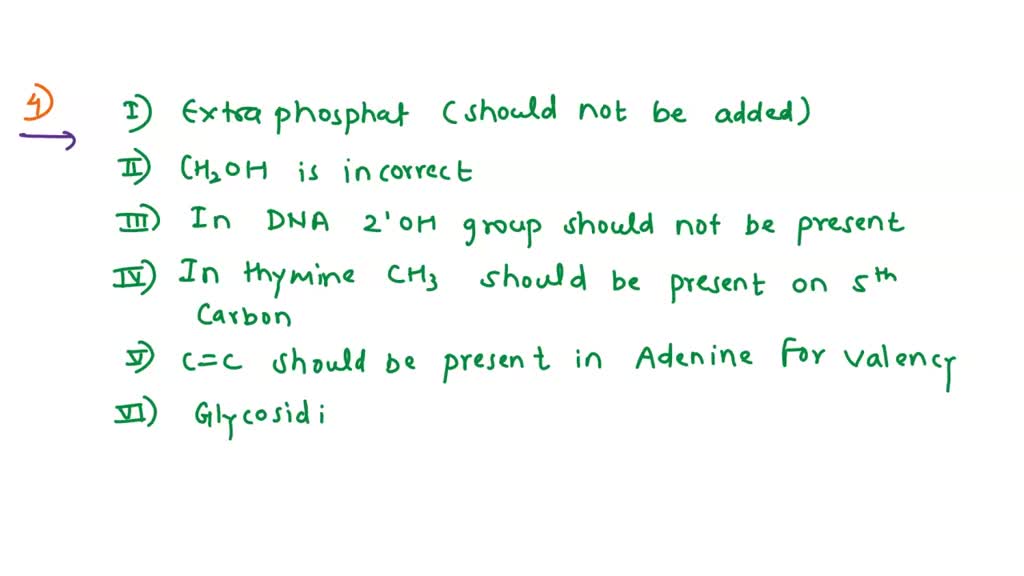 4)
I) Extra phosphat (should not be added)
II) CH₂OH is incorrect
III) In DNA 2'OH group should not be present
IV) In thymine CH₃ should be present on 5th
Carbon
V) C=C should be present in Adenine For valency
VI) Glycosidi